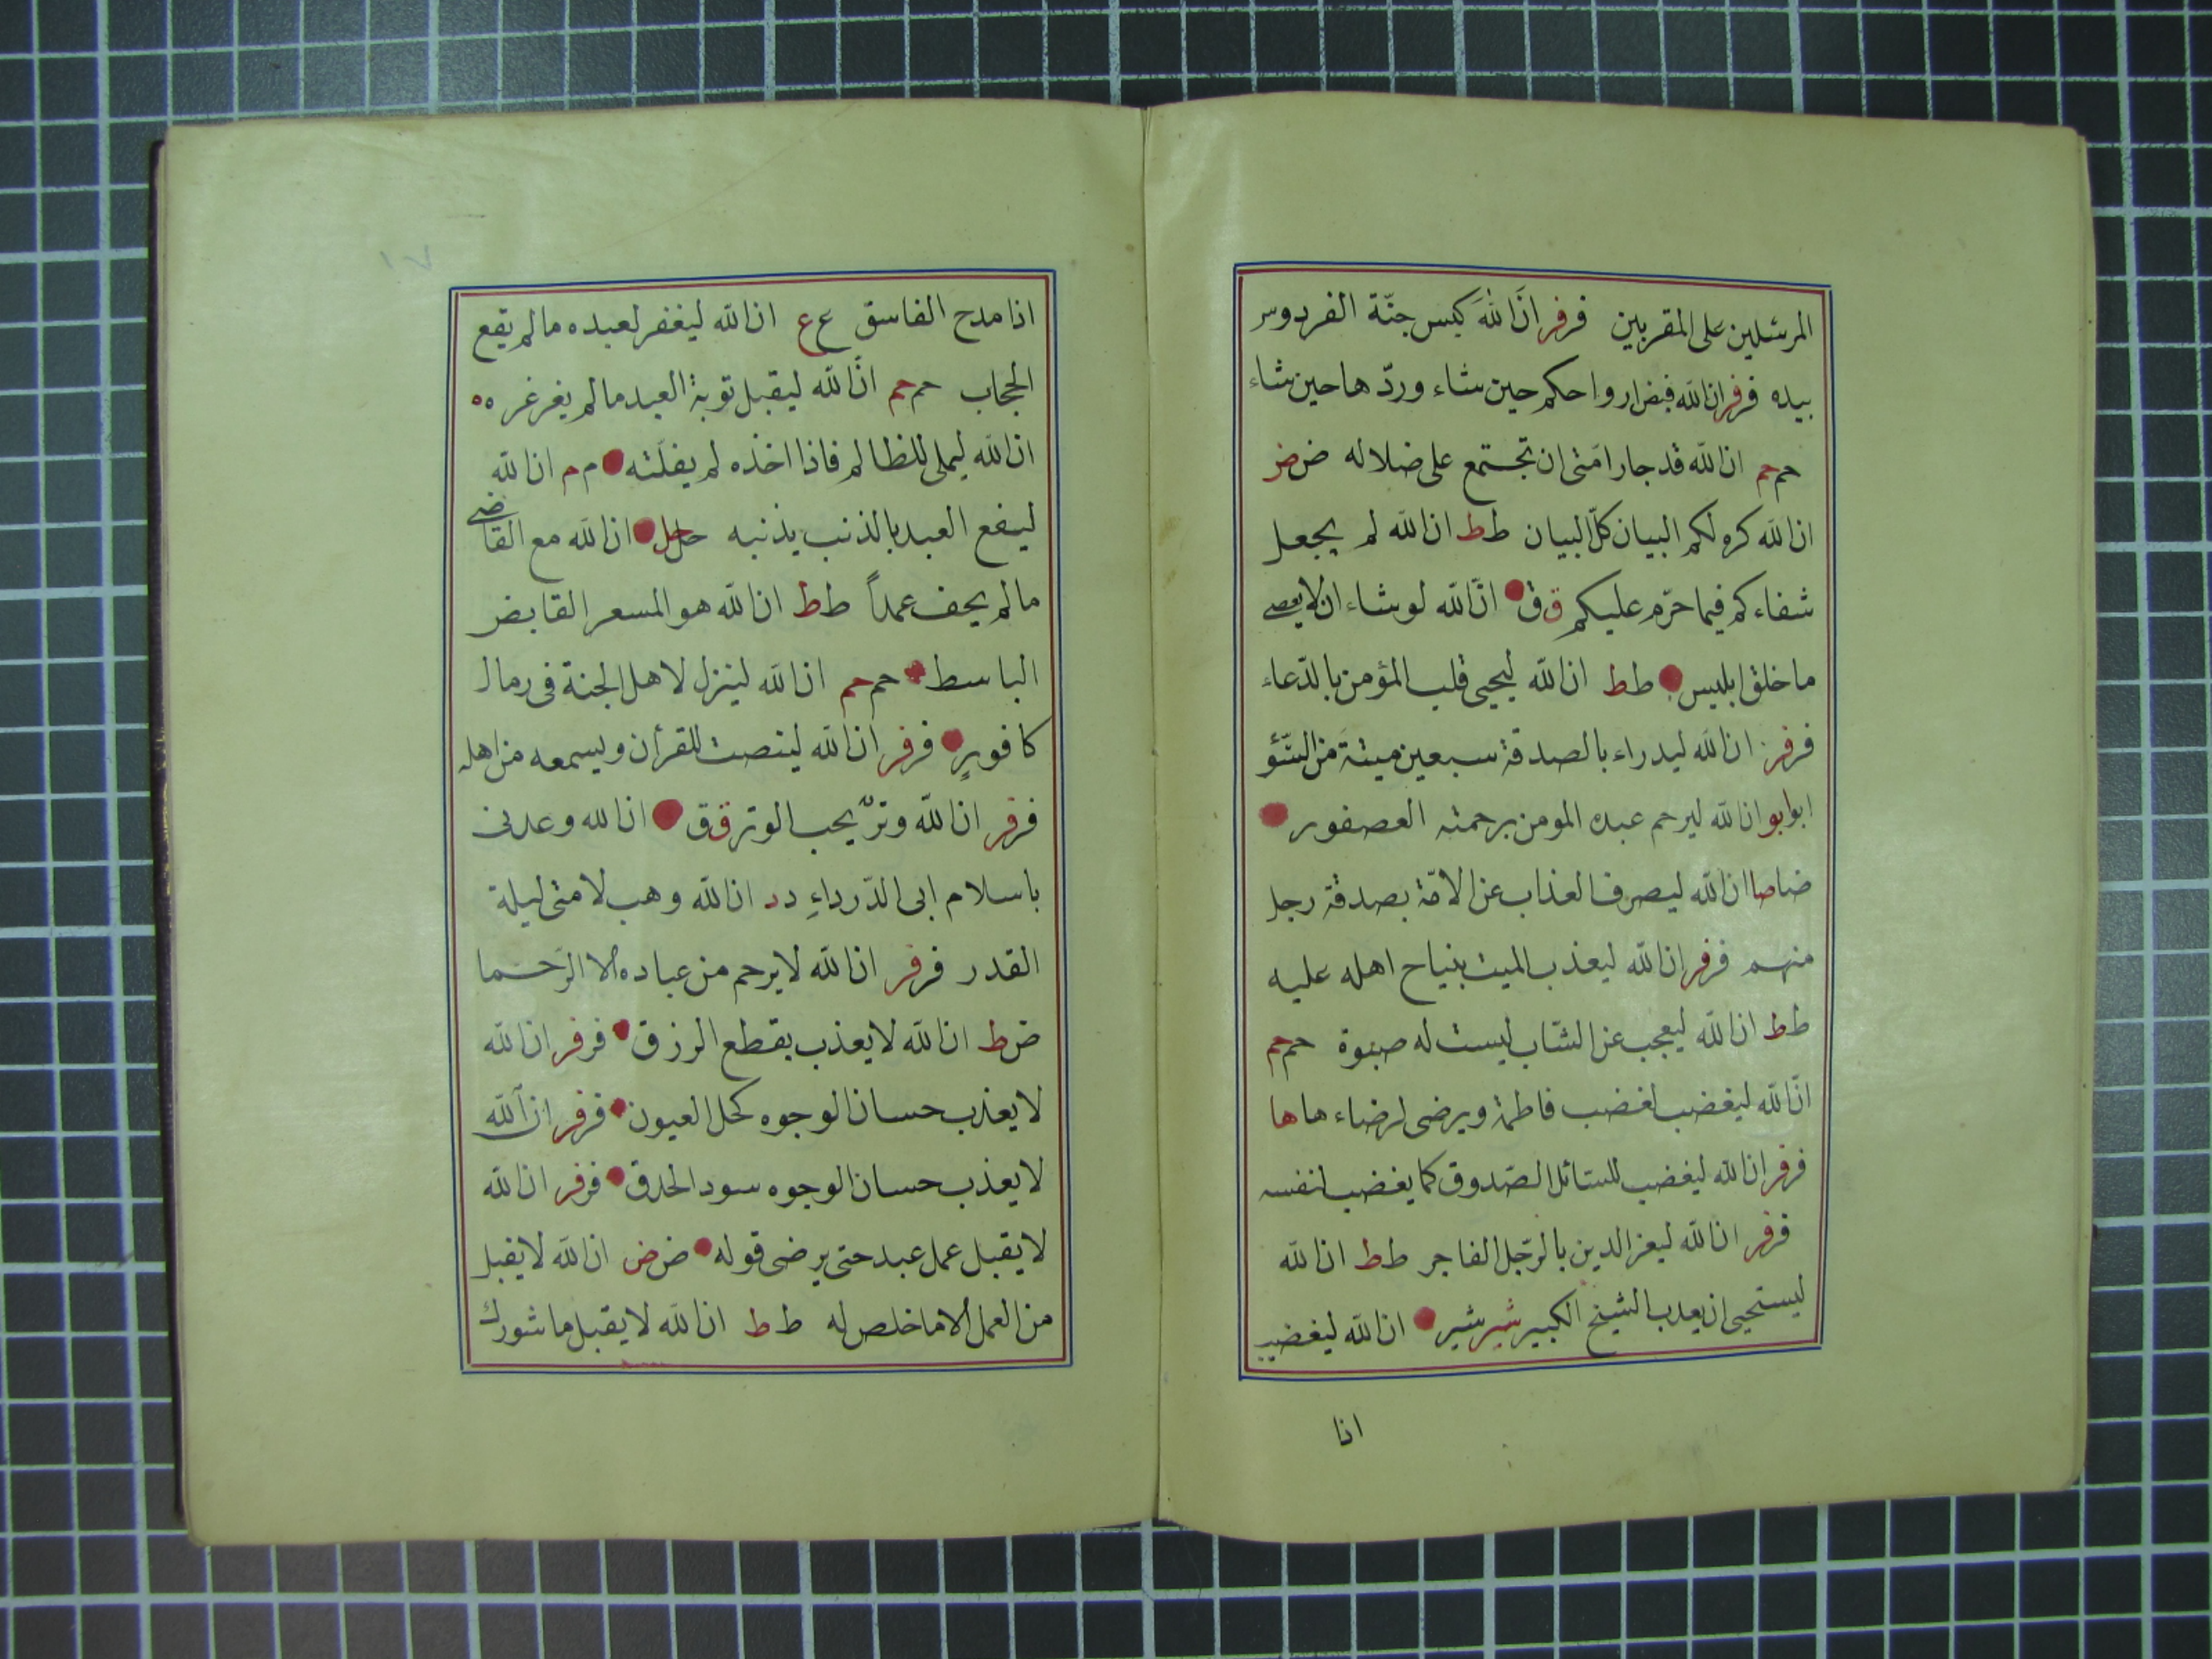 المرسلين على المقربين فر فر انَّ اللهَ كبس جنّة الفردوس
بيده فر فر ان الله قبض ارواحكم حين شاء وردّها حين شاء
حم حم ان الله قد جار امتى ان تجتمع على ضلاله ض ض
ان الله كره لكم البيان كلّ البيان ط ط ان الله لم يجعل
شفاءكم فيما حرّم عليكم ق ق انّ الله لو شاء ان لا يعصى
ما خلق ابليس ط ط ان الله ليحيى قلب المؤمن بالدّعاء
فر فر ان الله ليدراء بالصدقة سبعين ميتةَ من السّؤ
ابو ابو ان الله ليرحم عبده المومن برحمته العصفور
ضا صا ان الله ليصرف العذاب عن الامّة بصدقة رجل
منهم فر فر ان الله ليعذب الميت بنياح اهله عليه
ط ط ان الله ليعجب عن الشّاب ليست له صبوة حم حم
انّ الله ليغضب لغضب فاطمة ويرضى لرضاء ها ها
فر فر ان الله ليغضب للسّائل الصّدوق كما يغضب لنفسه
فر فر ان الله ليعز الدين بالرّجل الفاجر ط ط ان الله
ليستحيى ان يعذب الشيخ الكبير شير شير ان الله ليغضب
اذا
١٧
اذا مدح الفاسق ع ع ان الله ليغفر لعبده ما لم يقع
الحجاب حم حم انّ الله ليقبل توبة العبد ما لم يغرغر ه ه
ان الله ليملى للظالم فاذا اخذه لم يفلَته م م ان الله
لينفع العبد بالذنب يذنبه حل حل ان الله مع القاضى
ما لم يحف عمداً ط ط ان الله هو المسعر القابض
الباسط حم حم ان الله لينزل لاهل الجنة فى رمال
كافورٍ فر فر ان الله لينصت للقرأن ويسمعه من اهله
فر فر ان الله وترٌ يحب الوتر ق ق ان الله وعدنى
باسلام ابى الدّرداءِ د د ان الله وهب لامتى ليلة
القدر فر فر ان الله لا يرحم من عباده الا الرّحما
ض ط ان الله لا يعذب بقطع الرزق فر فر ان الله
لا يعذب حسان الوجوه كحل العيون فر فر ان الله
لا يعذب حسان الوجوه سود الحدق فر فر ان الله
لا يقبل عمل عبد حتى يرضى قوله ض ض ان الله لا يقبل
من العمل الا ما خلص له ط ط ان الله لا يقبل ما شورك